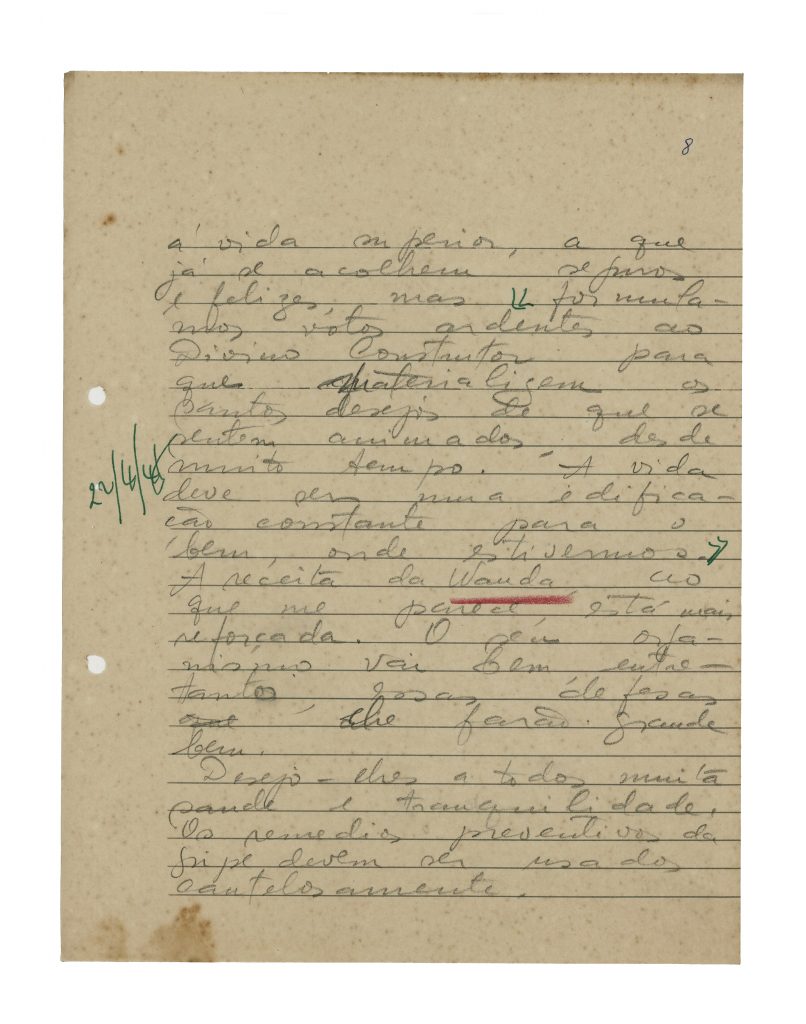 8
á vida superior, a que
já se acolhem seguros
e felizes, mas formula-
mos vótos ardentes ao
Divino Construtor para
que materializem os
santos desejos de que se
sentem animados desde
muito tempo. A vida
22/4/45
deve ser uma edifica-
ção constante para o
bem, onde estivermos.
A receita da Wanda ao
que me parece está mais
reforçada. O seu orga-
nismo vai bem entre-
tanto essas defesas
lhe farão grande
bem.
Desejo-lhes a todos muita
saude e tranquilidade.
Os remedios preventivos da
gripe devem ser usados
cautelosamente.